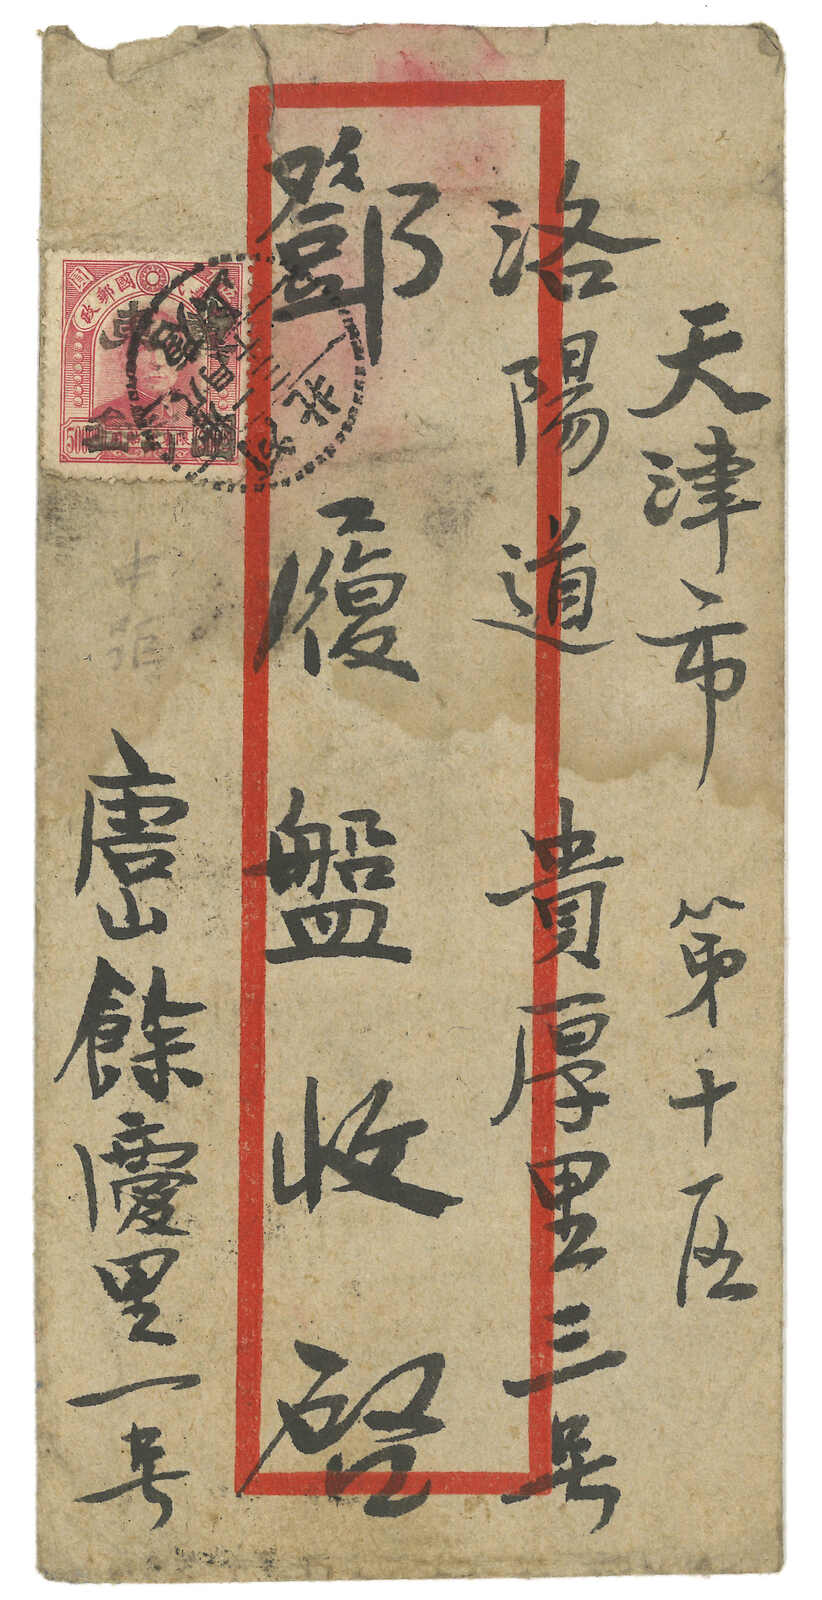 天津市 第十区
洛陽道 貴厚里三号
鄧履盤收啓
唐山餘慶里一号
國郵政
河北
唐山